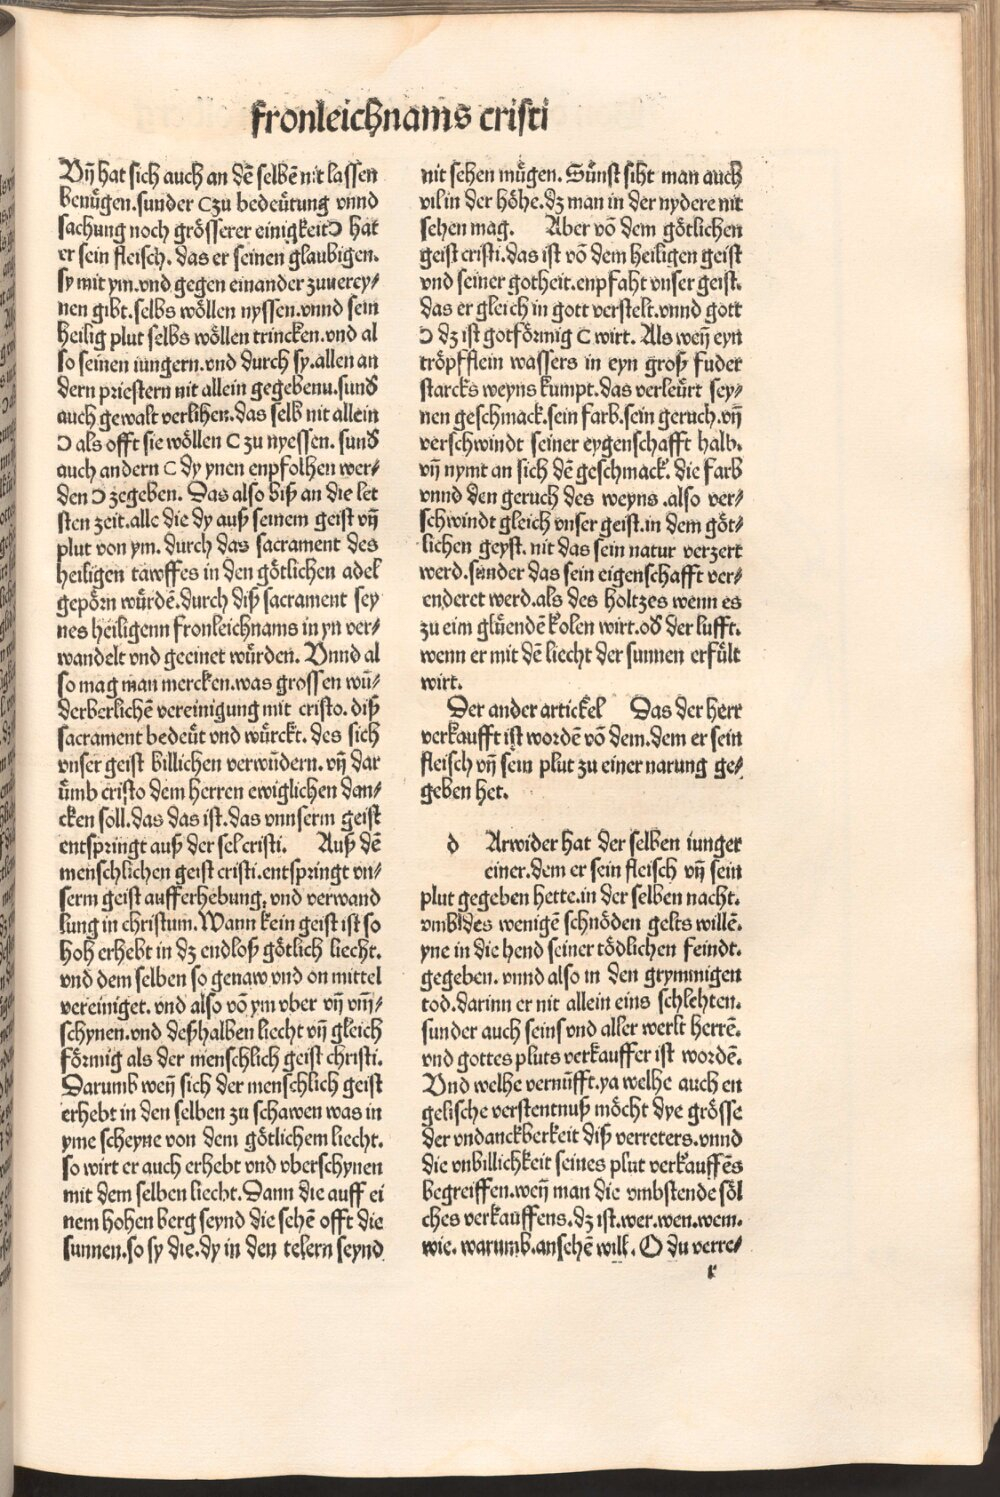 fronleichnams cristi
Vn̄ hat sich auch an dē selbē nit lassen
benu̇gen.sunder Czu bedeu̇tung vnnd
sachung noch grösserer einigkeitↃ hat
er sein fleisch. das er seinen glaubigen.
sy mit ym.vnd gegen einander zuuerey⸗
nen gibt.selbs wöllen nyssen.vnnd sein
heilig plut selbs wöllen trincken.vnd al
so seinen iungern.vnd durch sy.allen an
dern priestern nit allein gegebenn.sund̕
auch gewalt verlihen.das selb nit allein
Ↄ als offt sie wöllen C zu nyessen. sund̕
auch andern C dy ynen enpfolhen wer⸗
den Ↄ zegeben. Das also biß an die let
sten zeit.alle die dy auß seinem geist vn̄
plut von ym. durch das sacrament des
heiligen tawffes in den götlichen adel
gepörn wu̇rdē.durch diß sacrament sey
nes heiligenn fronleichnams in yn ver⸗
wandelt vnd geeinet wu̇rden. Vnnd al
so mag man mercken.was grossen wū⸗
derberlichē vereinigung mit cristo. diß
sacrament bedeu̇t vnd wu̇rckt. des sich
vnser geist billichen verwu̇ndern. vn̄ dar
u̇mb cristo dem herren ewiglichen dan⸗
cken soll.das das ist.das vnnserm geist
entspringt auß der sel cristi. Auß dē
menschlichen geist cristi.entspringt vn⸗
serm geist aufferhebung. vnd verwand
lung in christum.Wann kein geist ist so
hoh erhebt in dz endloß götlich liecht.
vnd dem selben so genaw vnd on mittel
vereiniget. vnd also vō ym vber vn̄ vm̄⸗
schynen.vnd deßhalben liecht vn̄ gleich
förmig als der menschlich geist christi.
Darumb wen̄ sich der menschlich geist
erhebt in den selben zu schawen was in
yme scheyne von dem götlichem liecht.
so wirt er auch erhebt vnd vberschynen
mit dem selben liecht.Dann die auff ei
nem hohen berg seynd die sehē offt die
sunnen.so sy die.dy in den telern seynd
nit sehen mu̇gen. Su̇nst siht man auch
vil in der höhe.dz man in der nydere nit
sehen mag. Aber vō dem götlichen
geist cristi.das ist vō dem heiligen geist
vnd seiner gotheit.enpfaht vnser geist.
das er gleich in gott verstelt.vnnd gott
Ↄ dz ist gotförmig C wirt. Als wen̄ eyn
tröpfflein wassers in eyn groß fuder
starcks weyns kumpt.das verleu̇rt sey⸗
nen geschmack.sein farb.sein geruch.vn̄
verschwindt seiner eygenschafft halb.
vn̄ nymt an sich dē geschmack. die farb
vnnd den geruch des weyns .also ver⸗
schwindt gleich vnser geist.in dem göt⸗
lichen geyst. nit das sein natur verzert
werd.sunder das sein eigenschafft ver⸗
enderet werd.als des holtzes wenn es
zu eim glu̇endē kolen wirt.od̕ der lufft.
wenn er mit dē liecht der sunnen erfu̇lt
wirt.
Der ander artickel Das der herr
verkaufft ist wordē vō dem.dem er sein
fleisch vn̄ sein plut zu einer narung ge⸗
geben het.
d Arwider hat der selben iunger
einer.dem er sein fleisch vn̄ sein
plut gegeben hette.in der selben nacht.
vmb des wenigē schnöden gelts willē.
yne in die hend seiner tödlichen feindt.
gegeben. vnnd also in den grymmigen
tod.darinn er nit allein eins schlehten.
sunder auch seins vnd aller werlt herrē.
vnd gottes pluts verkauffer ist wordē.
Vnd welhe vernu̇fft.ya welhe auch en
gelische verstentnuß möcht dye grösse
der vndanckberkeit diß verreters.vnnd
die vnbillichkeit seines plut verkauffēs
begreiffen.wen̄ man die vmbstende söl
ches verkauffens.dz ist.wer.wen.wem.
wie. warumb.ansehē will. O du verre⸗
r